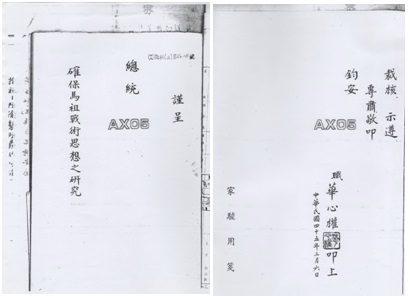 謹呈
總統
AX05
確保馬祖戰術思想之研究
裁核 示遵
專肅敬叩
鈞安
AX05
職 華心權 叩上
中華民國四十五年三月六日
家駿用箋